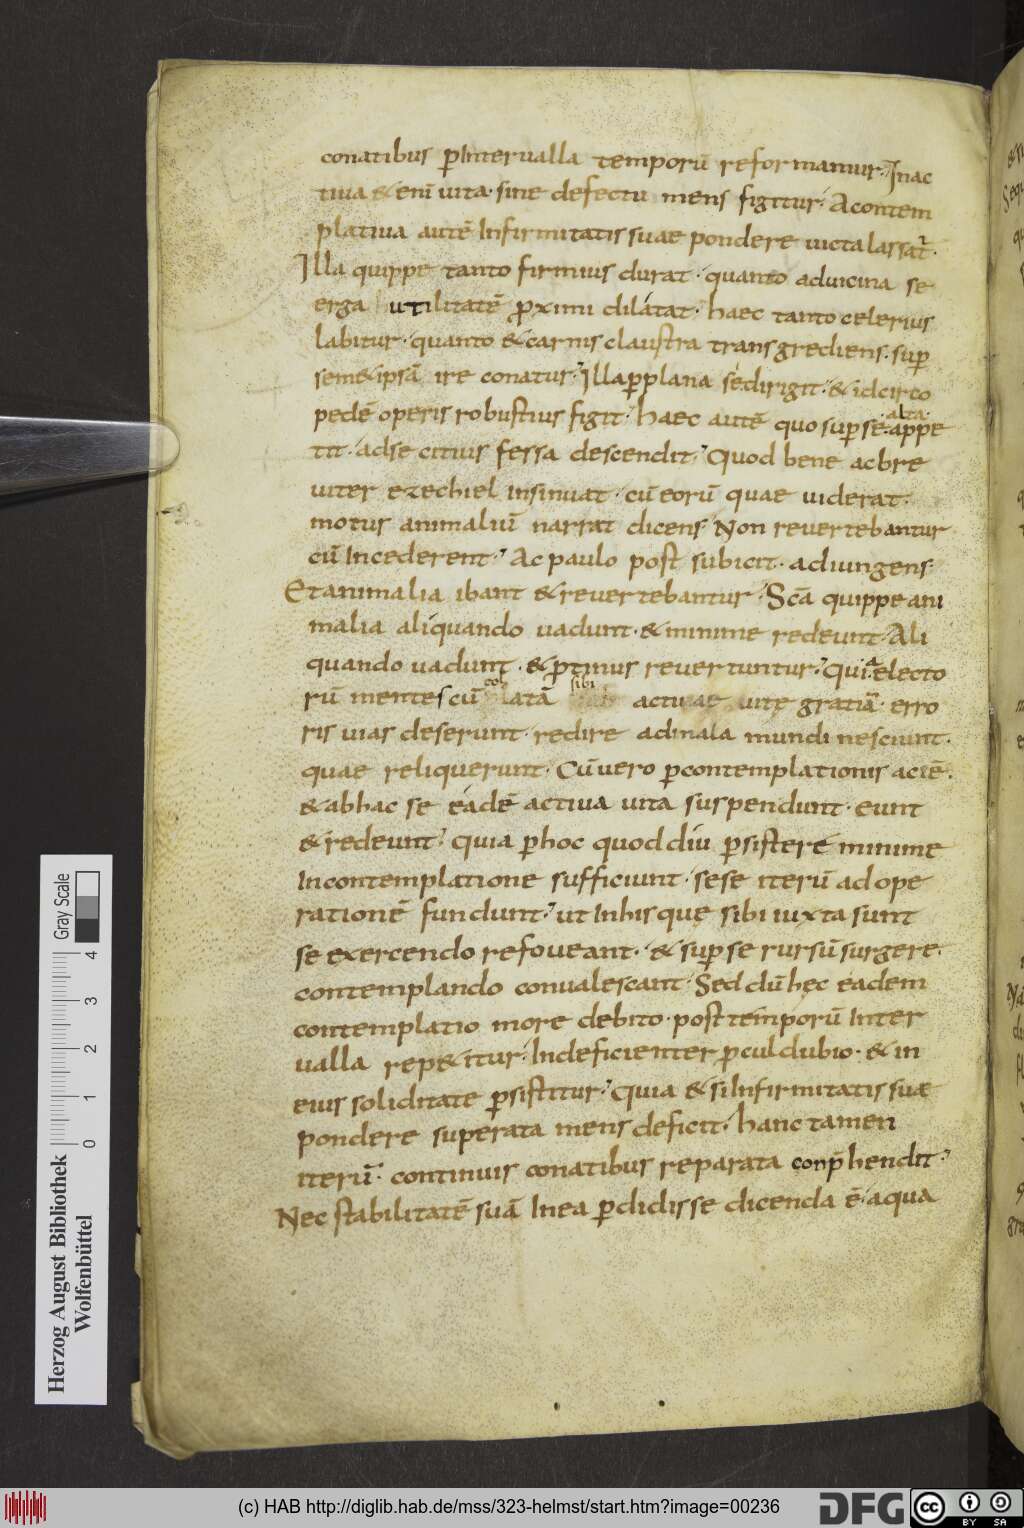 conatibus ꝑIntervalla temporū reformamur. Inac
tiua & enī uita. sine defectu mens figitur. Acontem
platiua autē Infirmitatis suae pondere uicta lassat̄.
Illa quippe tanto firmius durat. quanto aduicina se
erga utilitatē ꝓximi dilatat. haec tanto celerius
labitur. quanto & carnis claustra transgrediens. suꝑ
sem&ipsā ire conatur. Illa ꝑplana sedirigit. & idcirco
pedē operis robustius figit. haec autē quo suꝑ se alta appe
tit. adse citius fessa descendit. Quod bene acbre
uiter ezechiel insinuat. cū eorū quae uiderat.
motus animaliū narrat dicens. Non revertebantur
cū Incederent. Ac paulo post subicit. adiungens.
Et animalia ibant & revertebantur. Scā quippe ani
malia aliquando uadunt. & minime redeunt. Ali
quando uadunt. & ꝓtinus revertuntur. Qui a electo
rū mentes cū latā sibi actiuae uite gratiā. erro
ris uias deserunt. redire admala mundi nesciunt.
quae reliquerunt. Cū uero ꝑcontemplationis aciē.
& abhac se eadē activa uita suspendunt. eunt
& redeunt. quia ꝑ hoc quod diu ꝑsistere minime
Incontemplatione sufficiunt. sese iterū ad ope
rationē fundunt. ut Inhis que sibi iuxta sunt
se exercendo refoueant. & suꝑ se rursū surgere.
contemplando conualescant. Sed dū hęc eadem
contemplatio more debito. post temporū Inter
valla rep&itur. Indeficienter ꝓcul dubio. & in
eius soliditate ꝑsistitur. Quia & si Infirmitatis suae
pondere superata mens deficit. hanc tamen
iterū. continuis conatibus reparata conp̄hendit.
Nec stabilitatē suā Inea ꝑdidisse dicenda ē. aqua
Herzog August Bibliothek
Wolfenbüttel
0 1 2 3 4
Gray Scale
(c) HAB http://diglib.hab.de/mss/323-helmst/start.htm?image=00236
DFG
cc BY SA